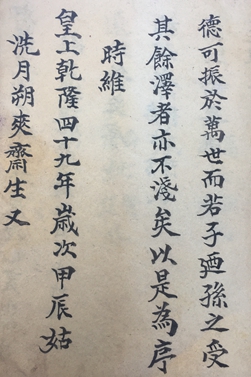 德可振於萬世而若子廼孫之受
其餘澤者亦不淺矣以是為序
時維
皇上乾隆四十九年歲次甲辰姑
洗月朔爽齋生又